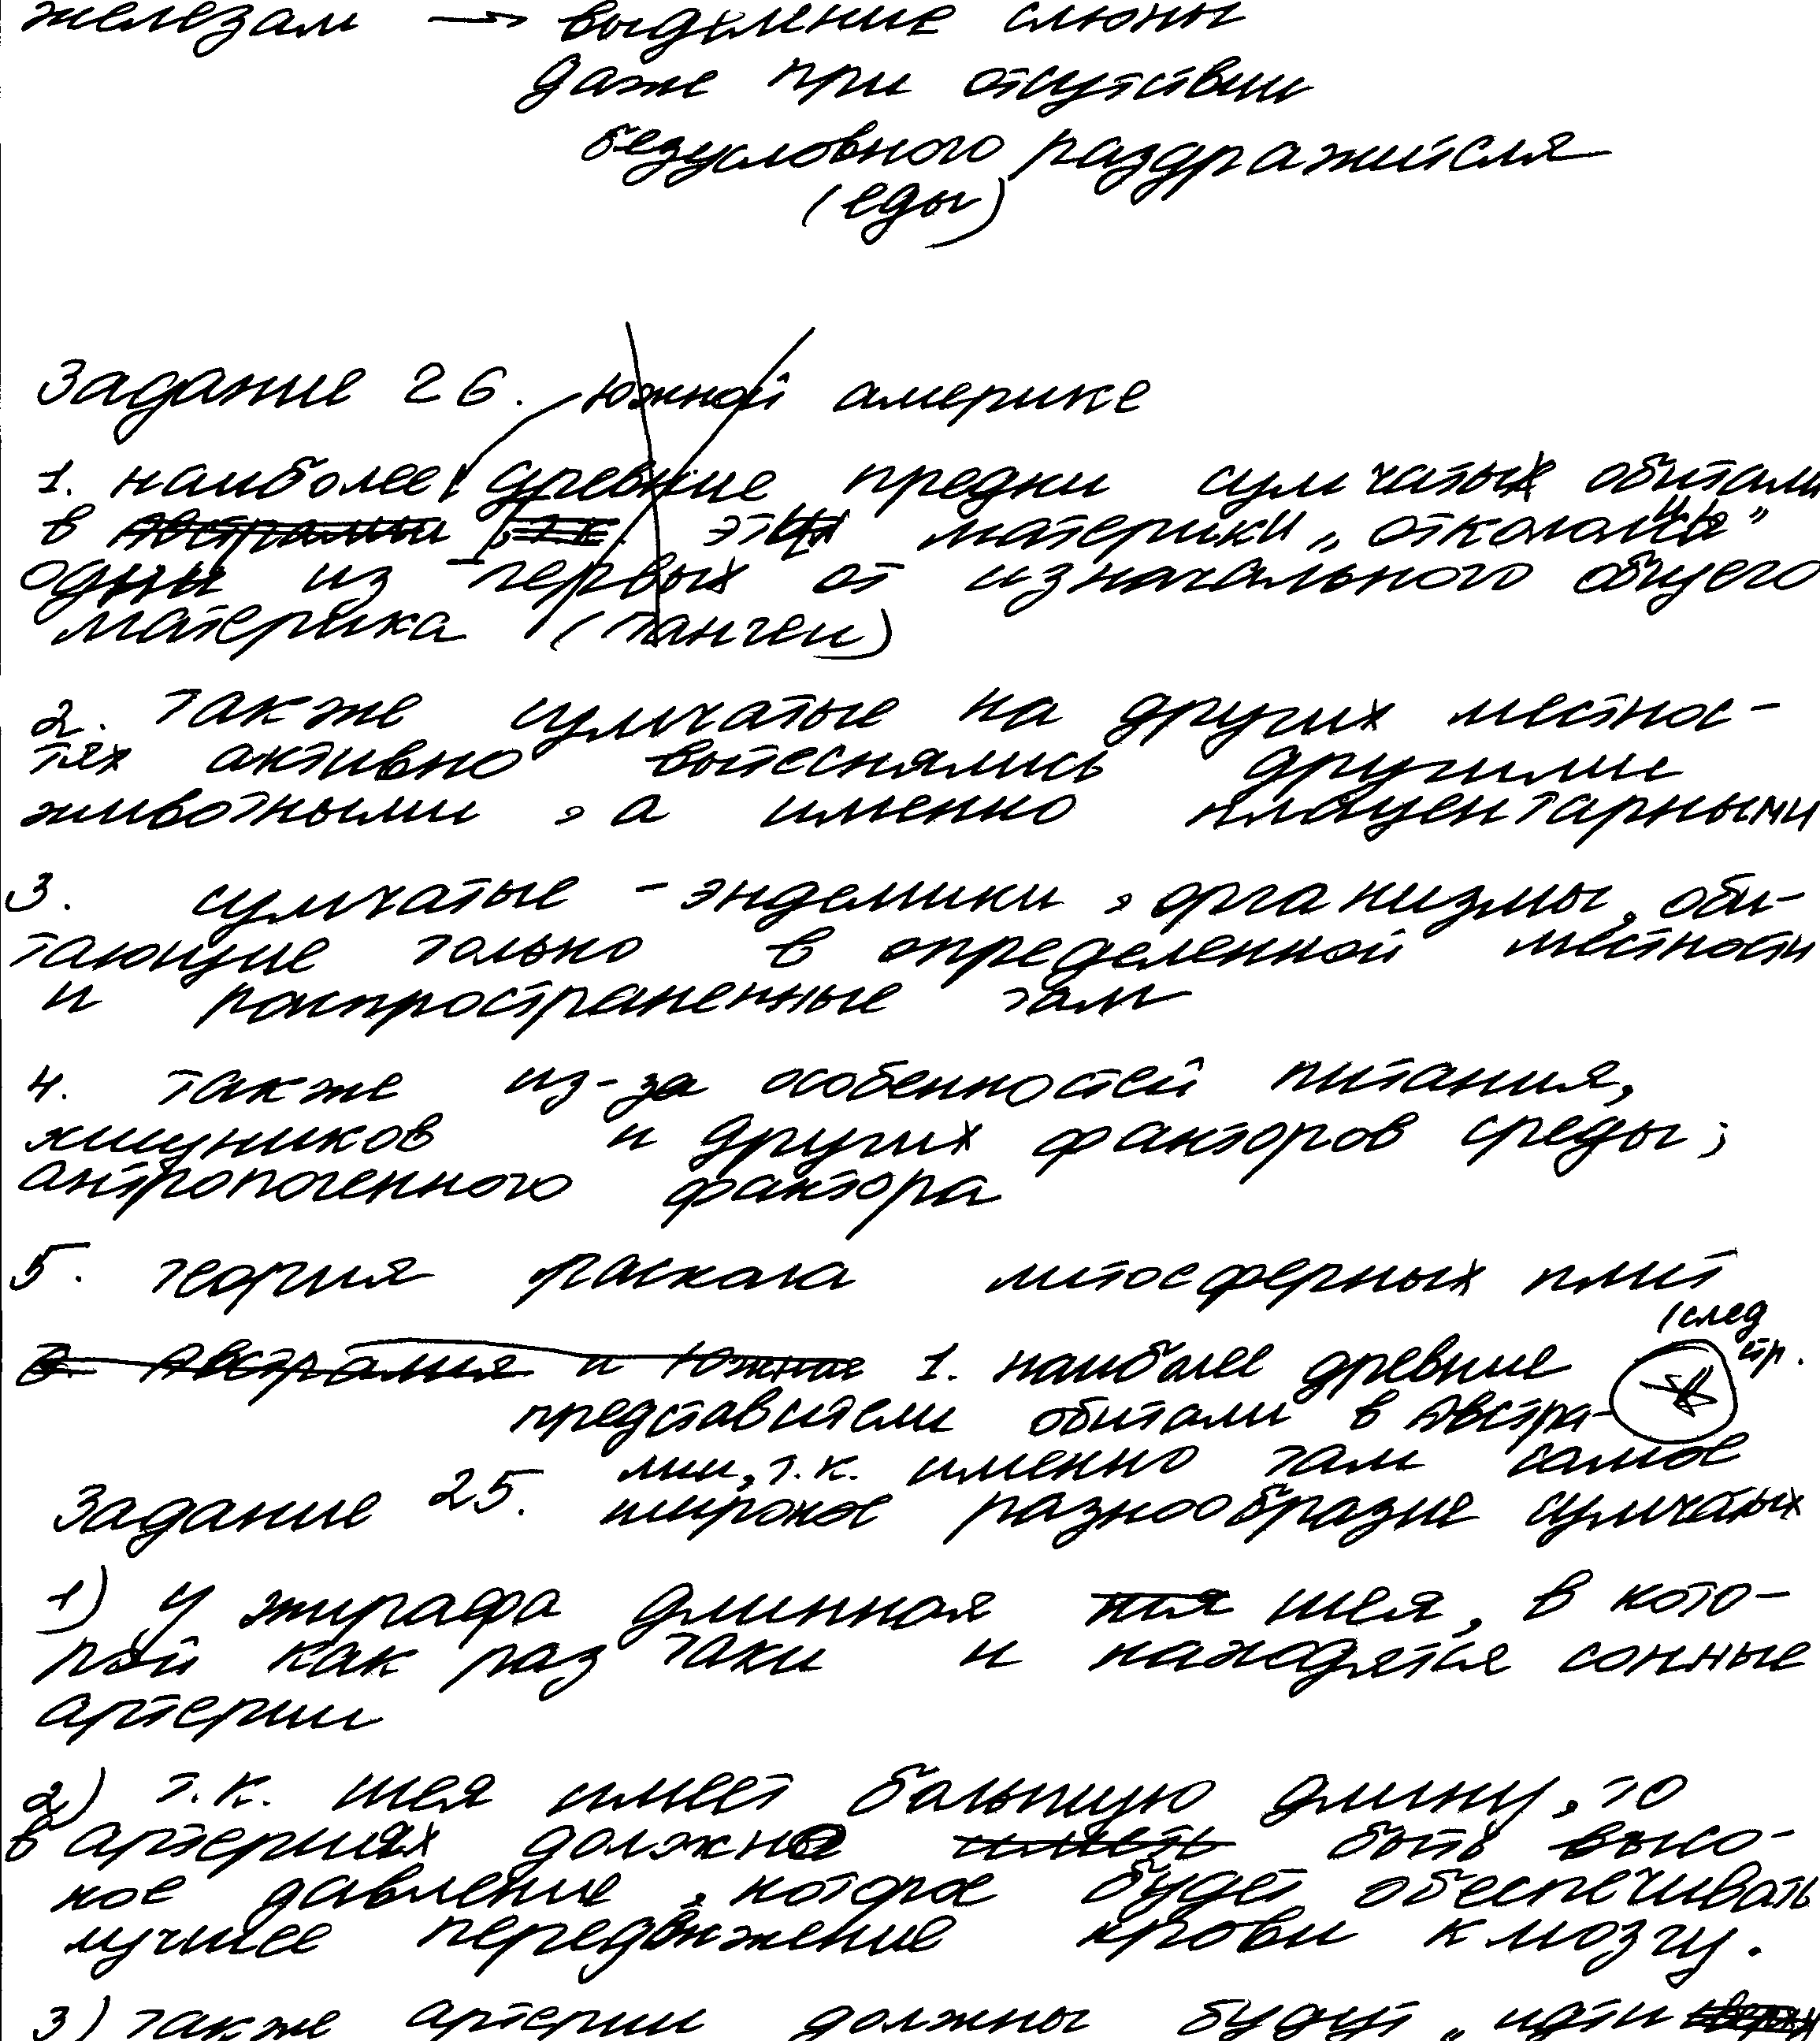 железам → выделение слюны
даже при отсутствии
безусловного раздражителя
(еды)
Задание 26. Южной америке
1. наиболее древние предки сумчатых обитали
в Австралии т.к. эти материки „откололись”
одни из первых от изначального общего
материка (Пангеи)
2. также сумчатые на других местнос-
тях активно вытеснялись другими
животными, а именно плацентарными
3. сумчатые - эндемики, организмы, оби-
тающие только в определенной местности
и распространенные там
4. также из-за особенностей питания,
хищников и других факторов среды;
антропогенного фактора
5. теория раскола литосферных плит
(след
стр.
Австралия и Южная 1. наиболее древние
представители обитали в Австра-
лии, т.к. именно там самое
Задание 25. широкое разнообразие сумчатых
1) у жирафа длинная шея, в кото-
рой как раз таки и находятся сонные
артерии
2) т.к. шея имеет большую длину, то
в артериях должно иметь быть высо-
кое давление, которое будет обеспечивать
лучшее передвижение крови к мозгу.
3) также артерии должны будут „идти